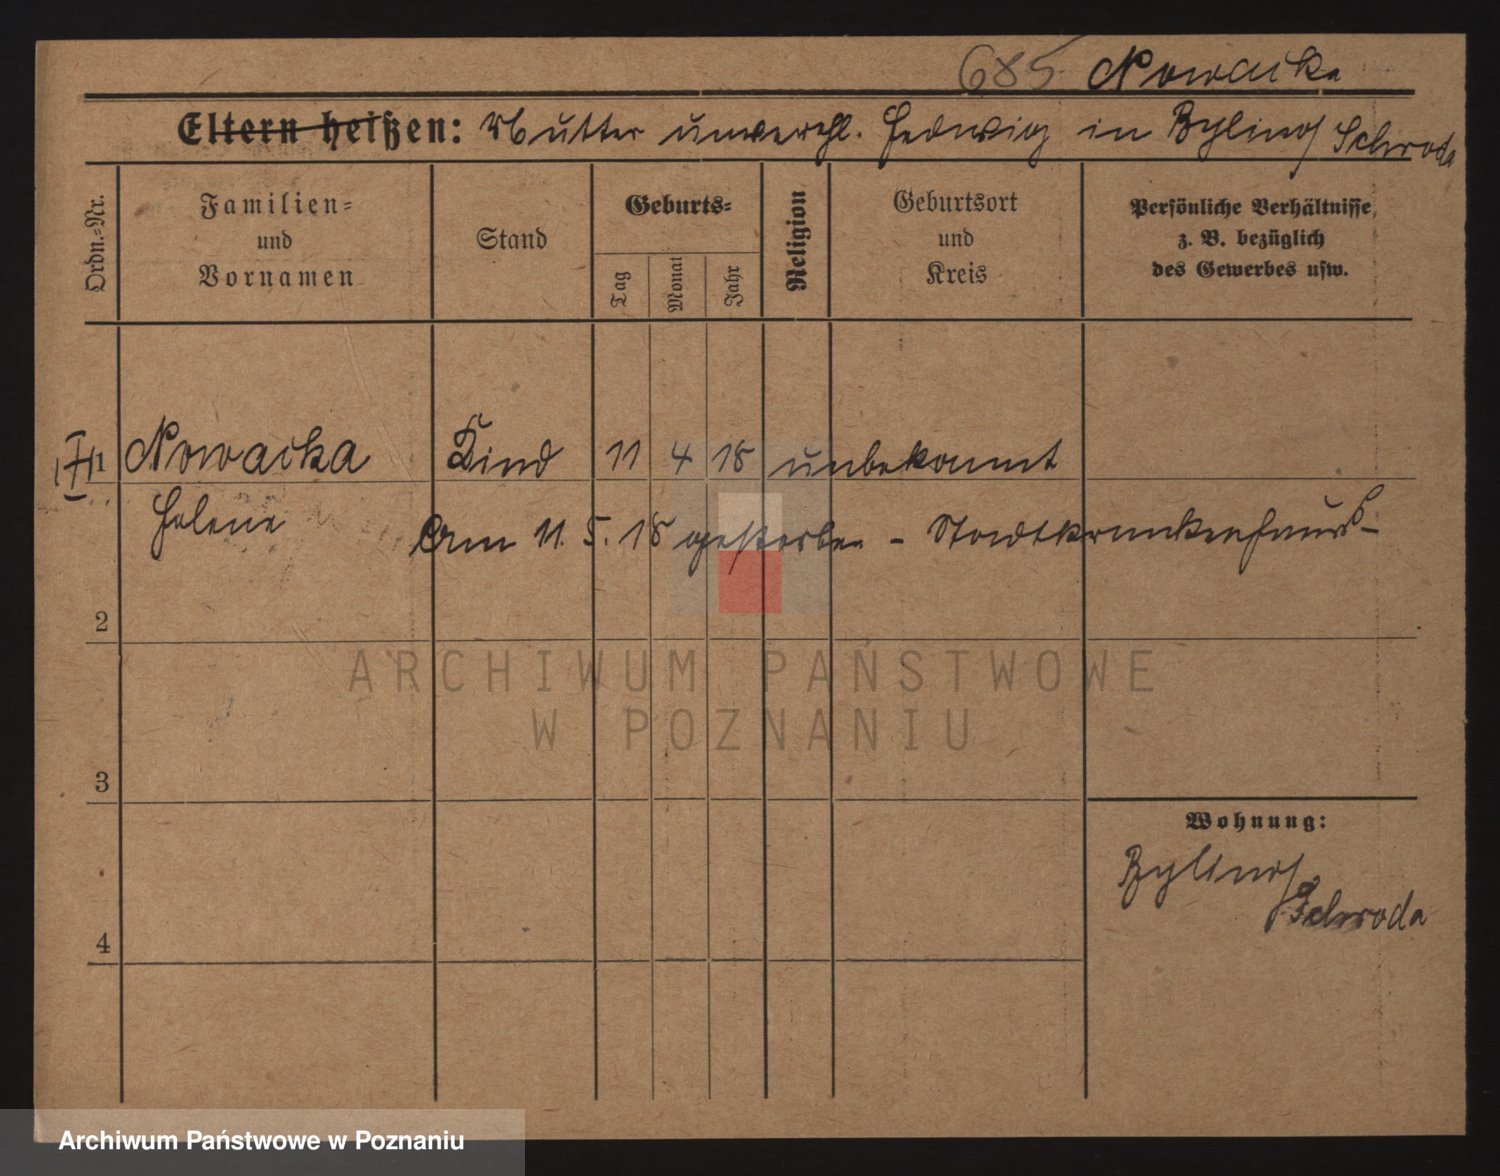 685 Nowacka
Eltern heißen: Mutter unverehl. Hedwig in Bylino/ Schroda
Ordn.=Nr.
Familien=
und
Vornamen
Stand
Geburts=
Tag
Monat
Jahr
Religion
Geburtsort
und
Kreis
Persönliche Verhältnisse
z. B. bezüglich
des Gewerbes usw.
1 Nowacka Kind 11 4 18 unbekannt
Helene
Am 11. 5. 18 gestorben - Stadtkrankenhaus -
2
ARCHIWUM PAŃSTWOWE
W POZNANIU
3
Wohnung:
Bylino/
Schroda
4
Archiwum Państwowe w Poznaniu